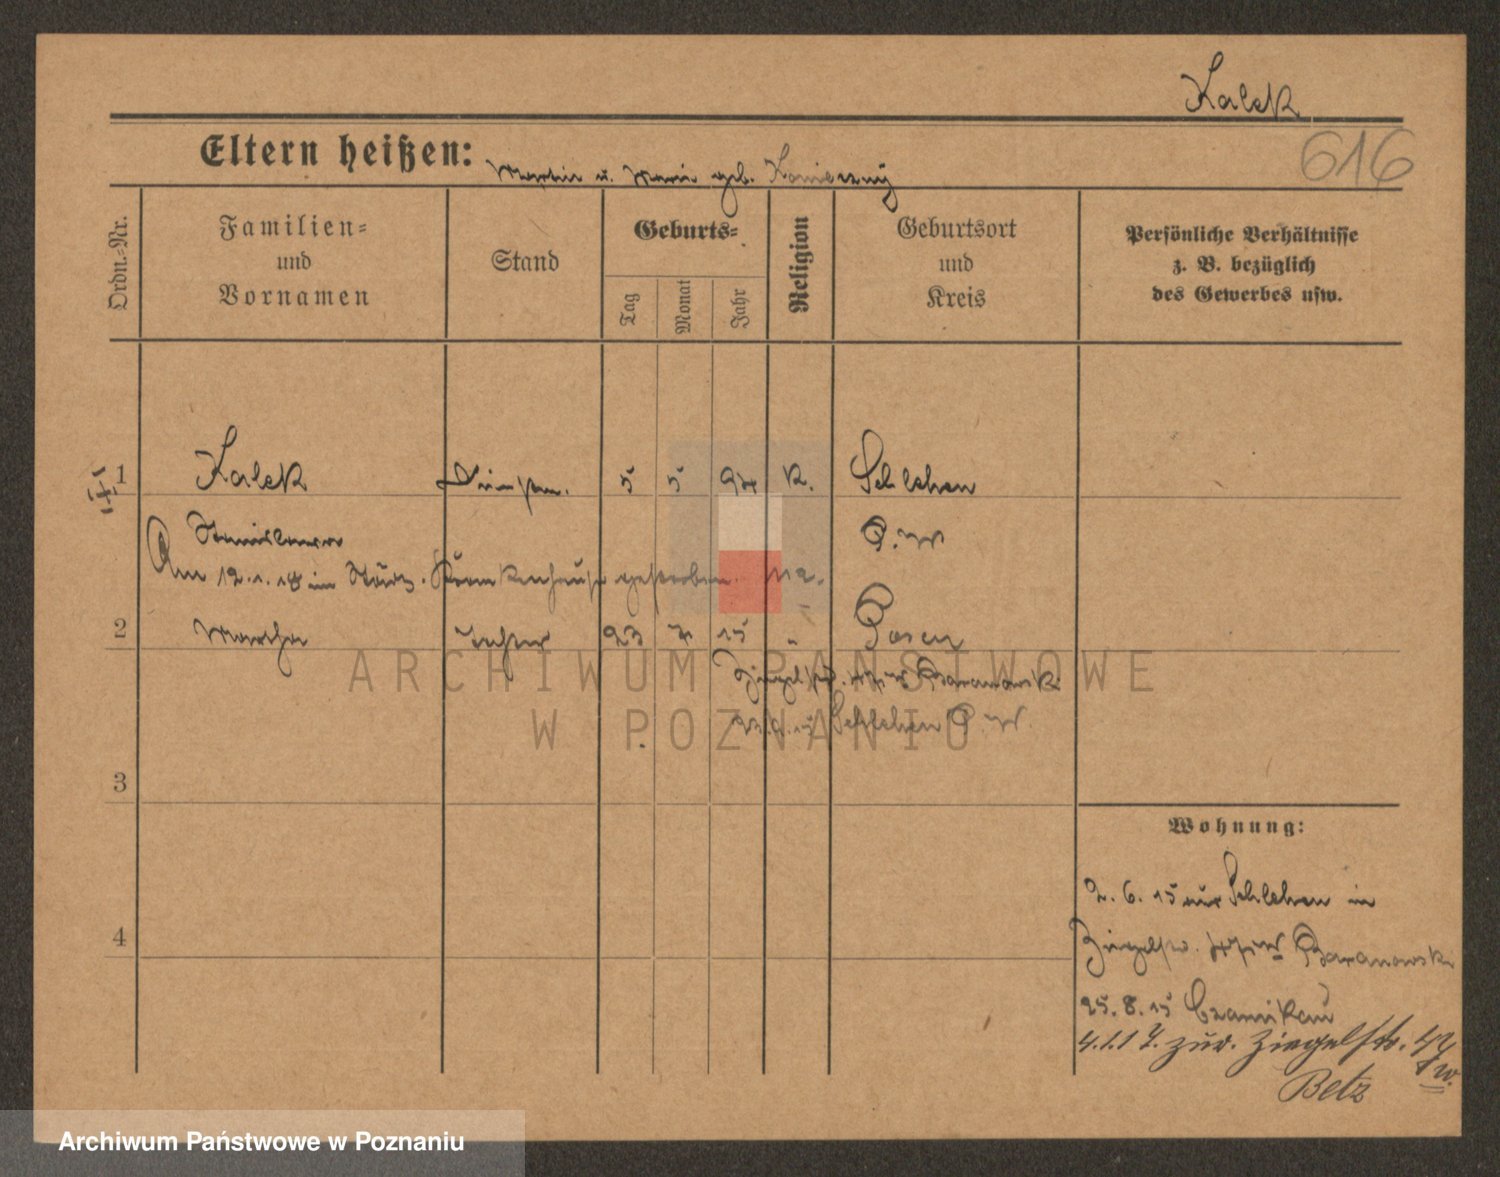 Kalek
616
Eltern heißen: Martin u. Marie geb. Konieczny
Ordn.=Nr.
Familien=
und
Vornamen
Stand
Geburts=
Tag
Monat
Jahr
Religion
Geburtsort
und
Kreis
Persönliche Verhältnisse
z. B. bezüglich
des Gewerbes usw.
1 Kalek 5 5 94 K. Schlehen
Stanislaus P. W
Am 12.1.18 im Städt. Krankenhause gestorben.
2 Martha Tochter 23 7 15 " Posen
Ziegelstr. Baranowski
Schlehen P. W.
3
Wohnung:
2. 6. 15 aus Schlehen in
Ziegelstr. Baranowski
4
25. 8. 15 Czarnikau
4.1.17. zur. Ziegelstr. 47
Betz
ARCHIWUM PAŃSTWOWE
W POZNANIU
Archiwum Państwowe w Poznaniu